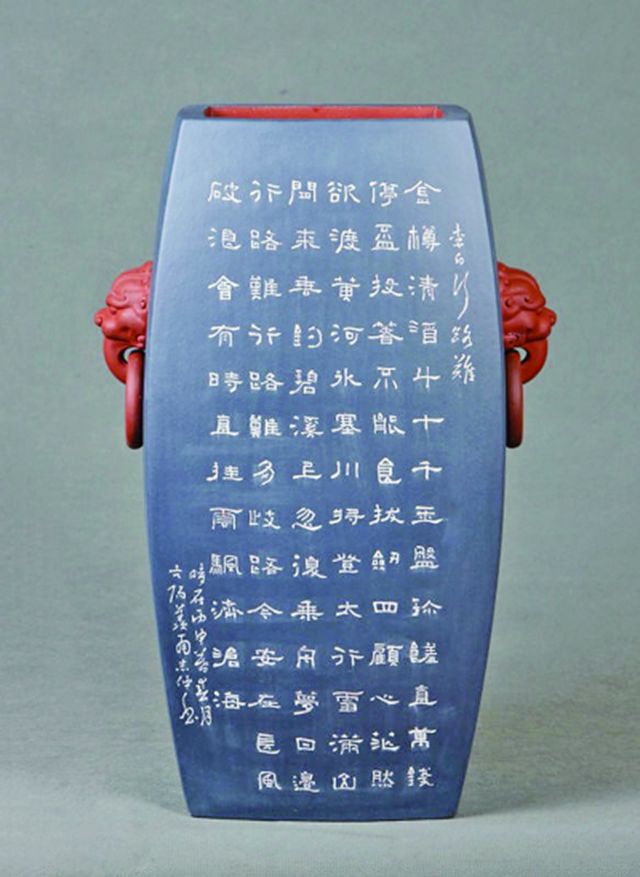 李白行路難
金樽清酒斗十千玉盤珍饈直萬錢
停盃投箸不能食拔劍四顧心茫然
欲渡黃河氷塞川將登太行雪滿山
閒來垂釣碧溪上忽復乘舟夢日邊
行路難行路難多歧路今安在長風
破浪會有時直挂雲颿濟滄海
丙申春月